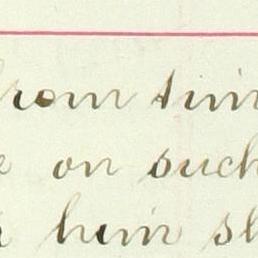 from tim
on such
him sh